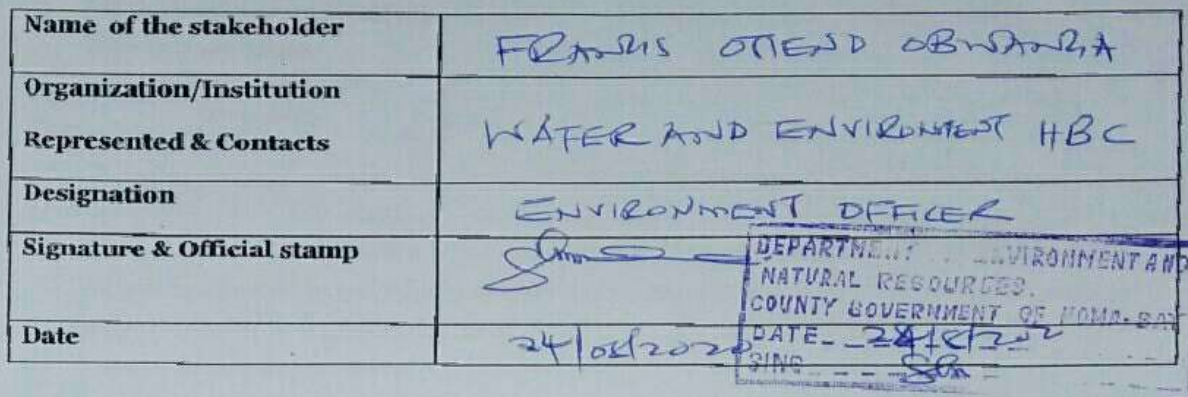 Name of the stakeholder
FRANCIS OTIENO OBWANGA
Organization/Institution
Represented & Contacts
WATER AND ENVIRONMENT HBC
Designation
ENVIRONMENT OFFICER
Signature & Official stamp
DEPARTMENT ENVIRONMENT AND
NATURAL RESOURCES.
COUNTY GOVERNMENT OF HOMA-BAY
Date
24/08/2020
DATE
SING